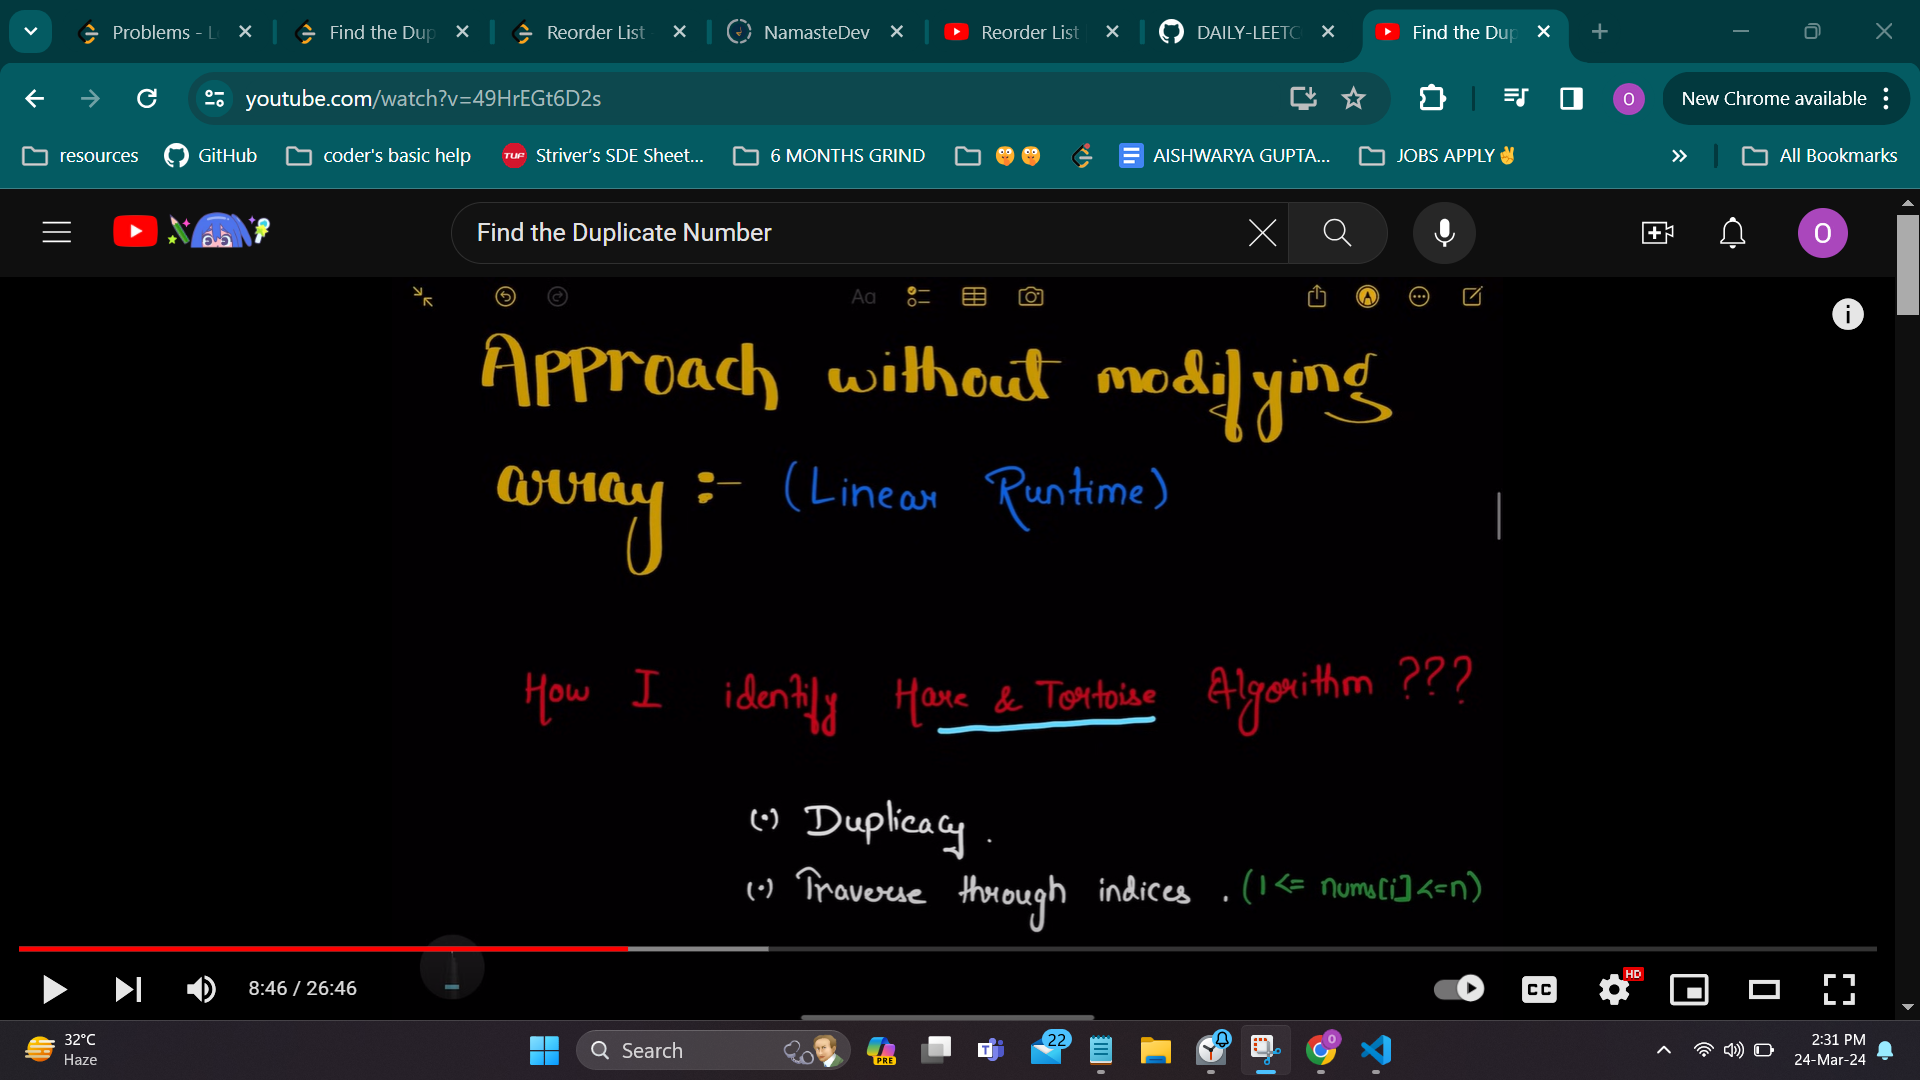 Problems - L
Find the Dup
Reorder List
NamasteDev
Reorder List
DAILY-LEETC
Find the Dup
youtube.com/watch?v=49HrEGt6D2s
New Chrome available
O
resources
GitHub
coder's basic help
TUF
Striver's SDE Sheet...
6 MONTHS GRIND
AISHWARYA GUPTA...
JOBS APPLY✌
All Bookmarks
Find the Duplicate Number
O
Aa
Approach without modifying
array :- (Linear Runtime)
How I identify Hare & Tortoise Algorithm ???
(•) Duplicacy.
(•) Traverse through indices. (1 <= nums[i] <= n)
8:46 / 26:46
CC
HD
32°C
Haze
Search
PRE
22
2:31 PM
24-Mar-24